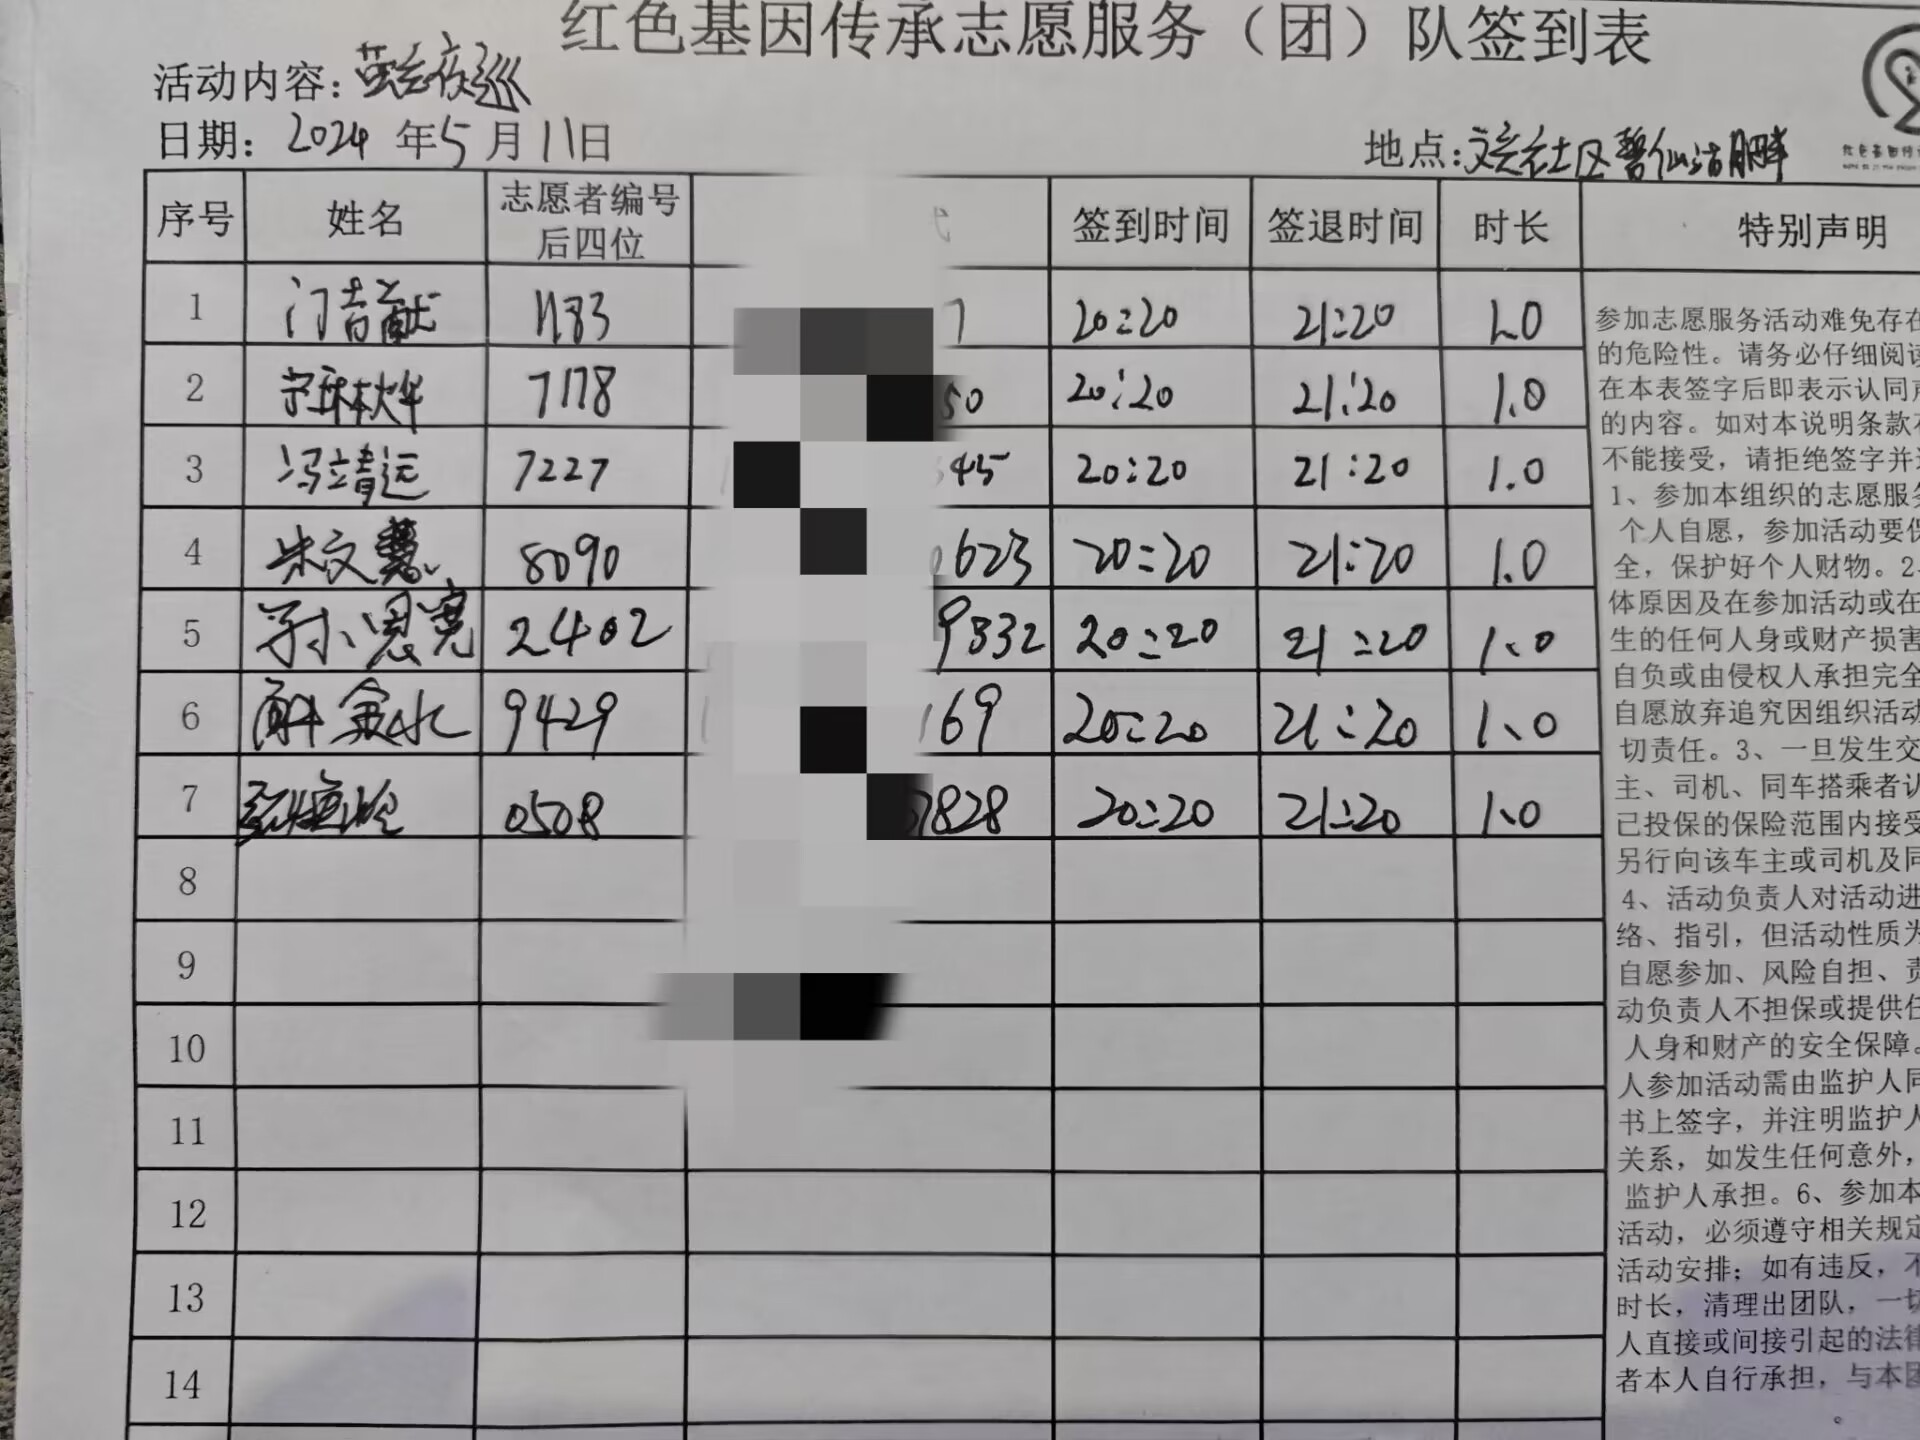 红色基因传承志愿服务（团）队签到表
活动内容：夜巡
日期：2024年5月11日
地点：文社区碧仙湖畔
序号 姓名 志愿者编号后四位 签到时间 签退时间 时长 特别声明
1 门吉献 1183 7 20:20 21:20 1.0
2 7178 50 20:20 21:20 1.0
3 冯靖远 7227 345 20:20 21:20 1.0
4 朱文慧 8090 623 20:20 21:20 1.0
5 孙恩宽 2402 9332 20:20 21:20 1.0
6 解金水 9429 169 20:20 21:20 1.0
7 0508 7828 20:20 21:20 1.0
8
9
10
11
12
13
14
参加志愿服务活动难免存在
的危险性。请务必仔细阅读
在本表签字后即表示认同声
的内容。如对本说明条款有
不能接受，请拒绝签字并退
1、参加本组织的志愿服务
个人自愿，参加活动要保
全，保护好个人财物。2、
体原因及在参加活动或在
生的任何人身或财产损害
自负或由侵权人承担完全
自愿放弃追究因组织活动
切责任。3、一旦发生交
主、司机、同车搭乘者认
已投保的保险范围内接受
另行向该车主或司机及同
4、活动负责人对活动进
络、指引，但活动性质为
自愿参加、风险自担、责
动负责人不担保或提供任
人身和财产的安全保障。
人参加活动需由监护人同
书上签字，并注明监护人
关系，如发生任何意外，
监护人承担。6、参加本
活动，必须遵守相关规定
活动安排；如有违反，不
时长，清理出团队，一切
人直接或间接引起的法律
者本人自行承担，与本团
。